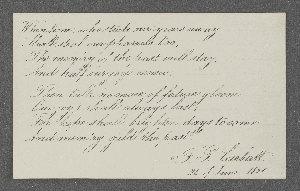 When time, who steals our years away
Shall steal our pleasures too,
The memory of the past will stay,
And half our joys renew.
Then talk no more of future gloom
Our joys shall always last;
For hope shall brighten days to come
And memory gild the past.
21 June